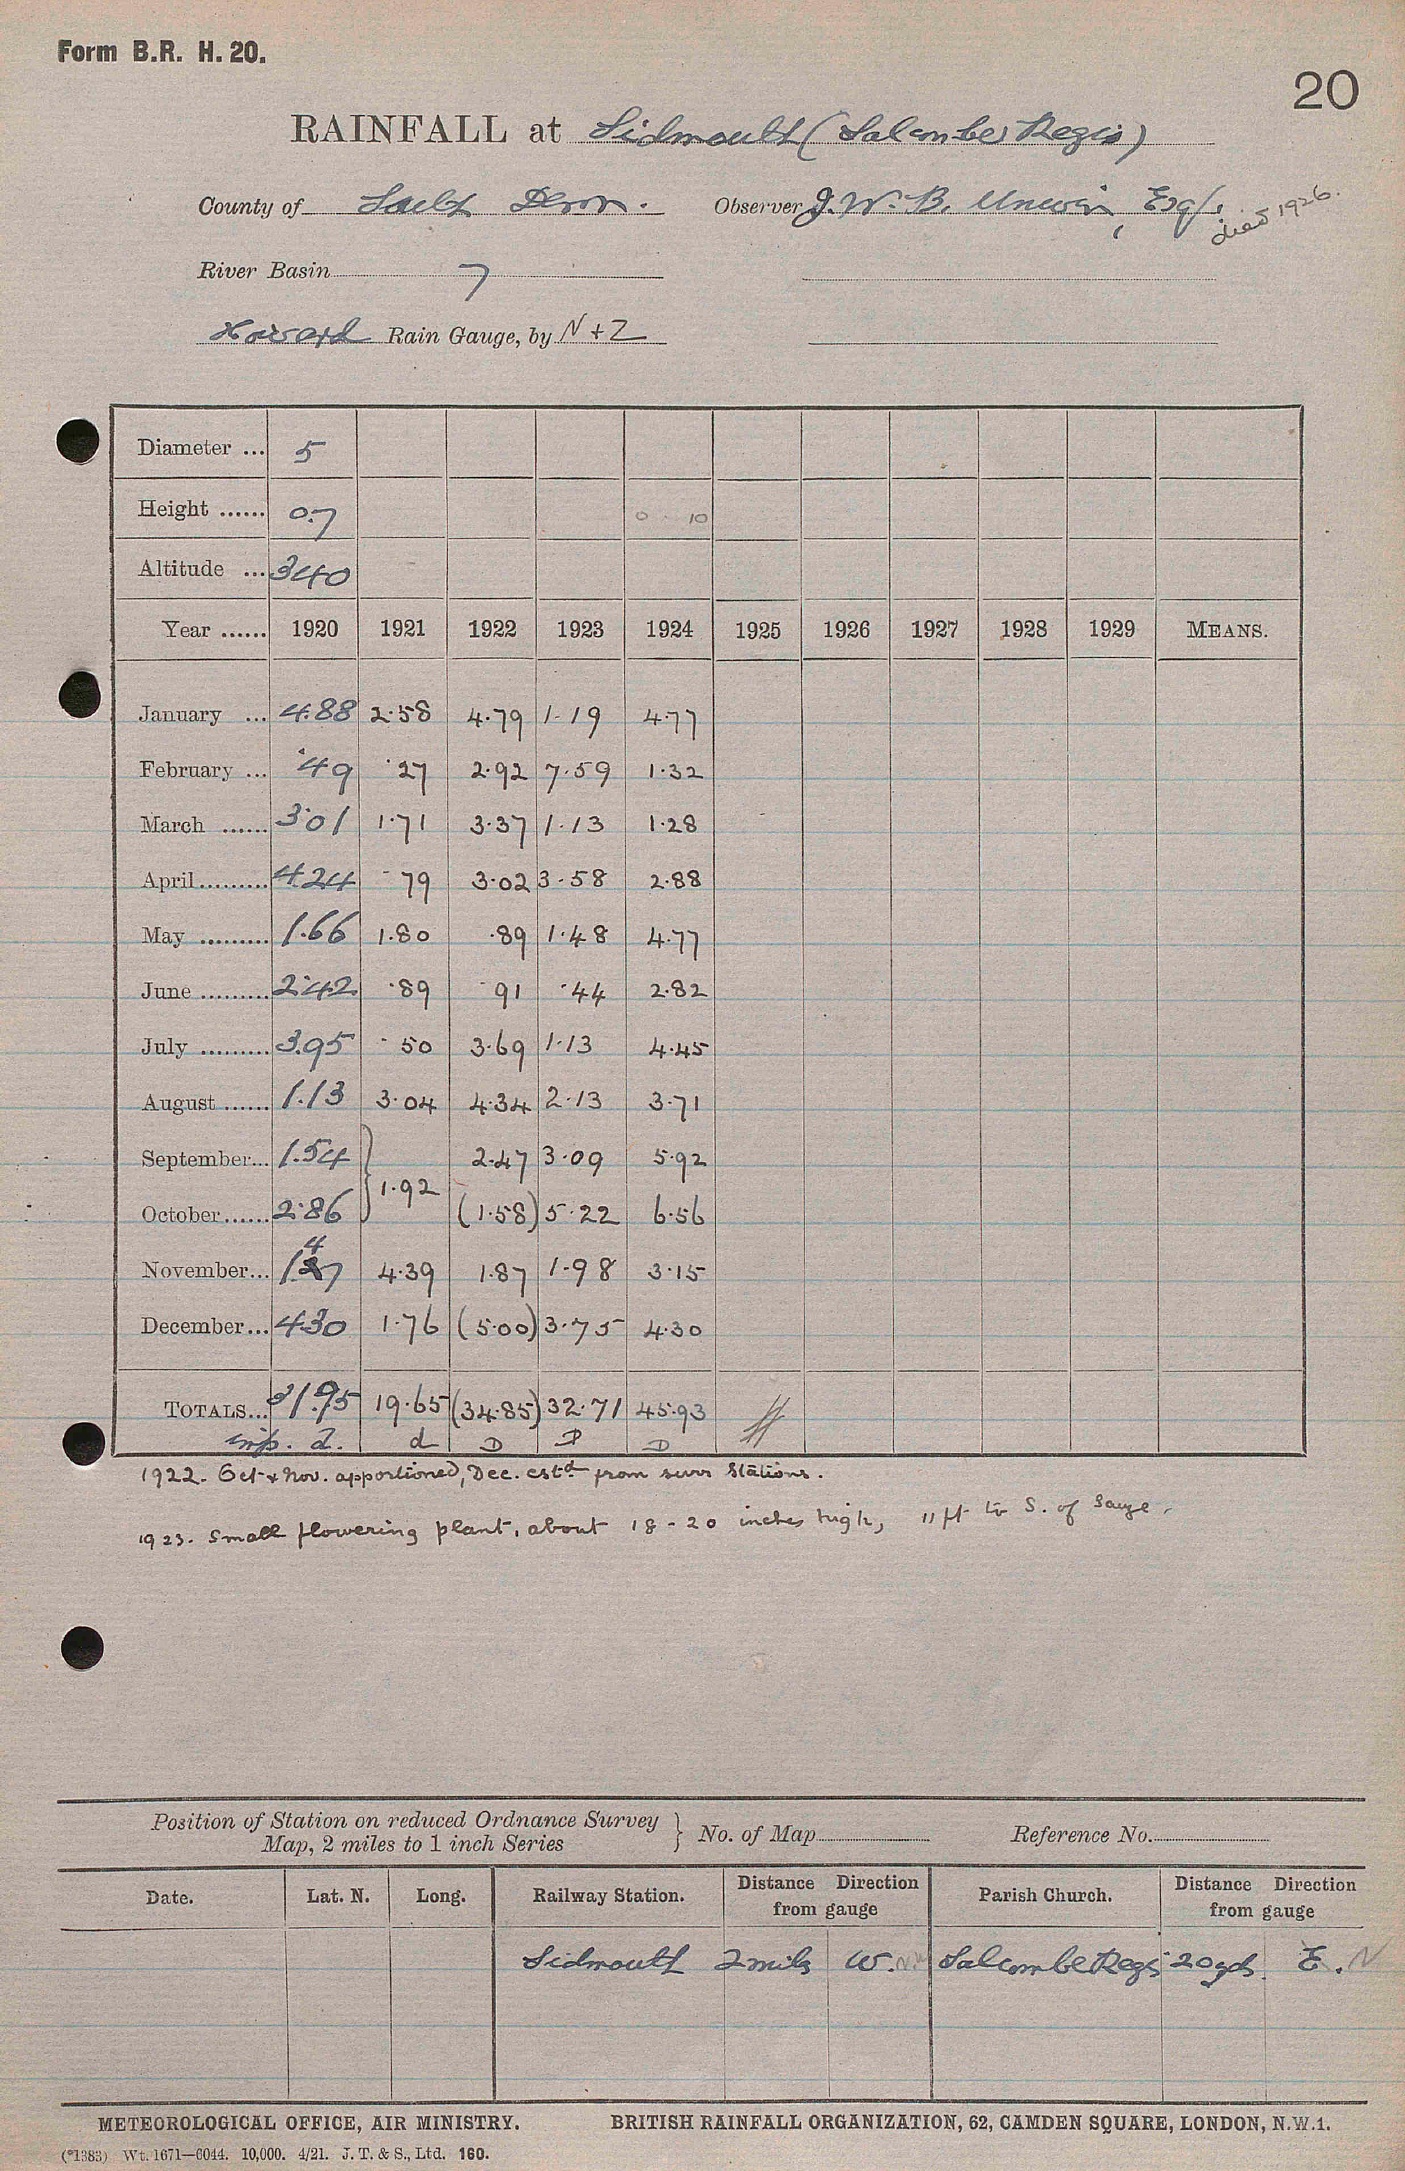 Form B.R. H. 20.
20
RAINFALL at Sidmouth (Salcombe Regis)
County of South Devon. Observer J. W. B. Unwin, Esq.
died 1926.
River Basin 7
Howard Rain Gauge, by N + Z
Diameter ... 5
Height ...... 0.7 0 . 10
Altitude ... 340
Year ...... 1920 1921 1922 1923 1924 1925 1926 1927 1928 1929 MEANS.
January ... 4.88 2.58 4.79 1.19 4.77
February ... .49 .27 2.92 7.59 1.32
March ...... 3.01 1.71 3.37 1.13 1.28
April ......... 4.24 .79 3.02 3.58 2.88
May ......... 1.66 1.80 .89 1.48 4.77
June ......... 2.42 .89 .91 .44 2.82
July ......... 3.95 .50 3.69 1.13 4.45
August ...... 1.13 3.04 4.34 2.13 3.71
September... 1.54 2.47 3.09 5.92
} 1.92
October...... 2.86 (1.58) 5.22 6.56
November... 1.47 4.39 1.87 1.98 3.15
December... 4.30 1.76 (5.00) 3.75 4.30
TOTALS... 31.95 19.65 (34.85) 32.71 45.93
imp. d. d D D D
1922. Oct & Nov. apportioned, Dec. estd from surr stations.
1923. Small flowering plant, about 18-20 inches high, 11 ft to S. of gauge.
Position of Station on reduced Ordnance Survey
Map, 2 miles to 1 inch Series } No. of Map Reference No.
Date. Lat. N. Long. Railway Station. Distance Direction from gauge Parish Church. Distance Direction from gauge
Sidmouth 2 miles W. Salcombe Regis 20 yds. E. N
METEOROLOGICAL OFFICE, AIR MINISTRY. BRITISH RAINFALL ORGANIZATION, 62, CAMDEN SQUARE, LONDON, N.W.1.
(*1383) Wt. 1671—6044. 10,000. 4/21. J. T. & S., Ltd. 160.